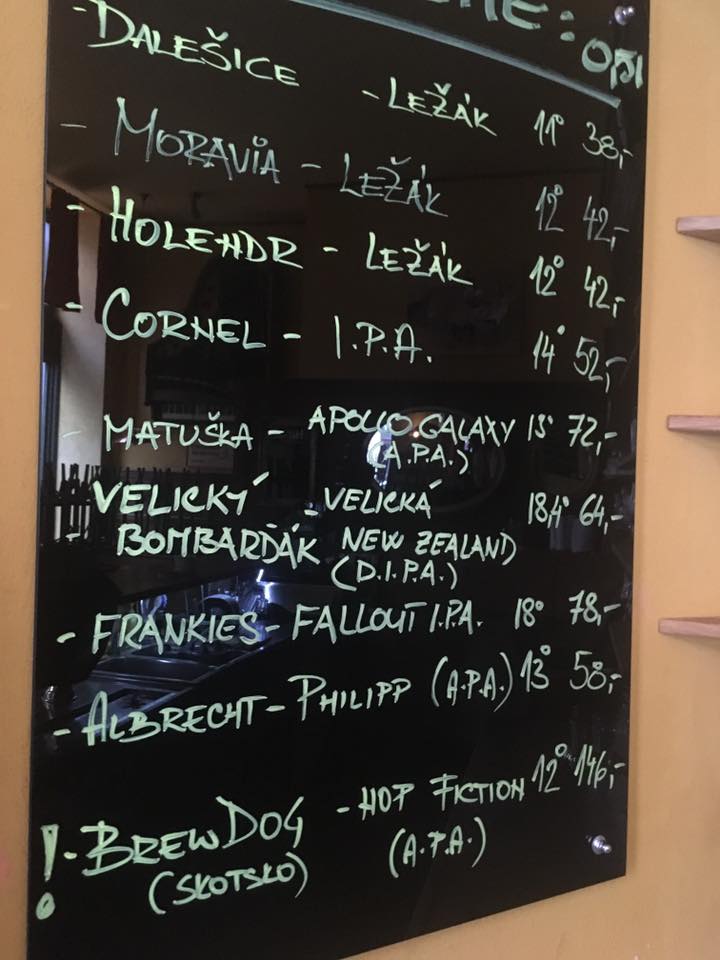 0,5l
- DALEŠICE - LEŽÁK 11° 38,-
- MORAVIA - LEŽÁK 12° 42,-
- HOLENDR - LEŽÁK 12° 42,-
- CORNEL - I.P.A. 14° 52,-
- MATUŠKA - APOLLO GALAXY 13° 72,-
(A.P.A.)
VELICKÝ - VELICKÁ 18,4° 64,-
- BOMBARĎÁK NEW ZEALAND
(D.I.P.A.)
- FRANKIES - FALLOUT I.P.A. 18° 78,-
- ALBRECHT - PHILIPP (A.P.A.) 13° 58,-
! - BREWDOG - HOP FICTION 12° 146,-
(SKOTSKO) (A.P.A.)